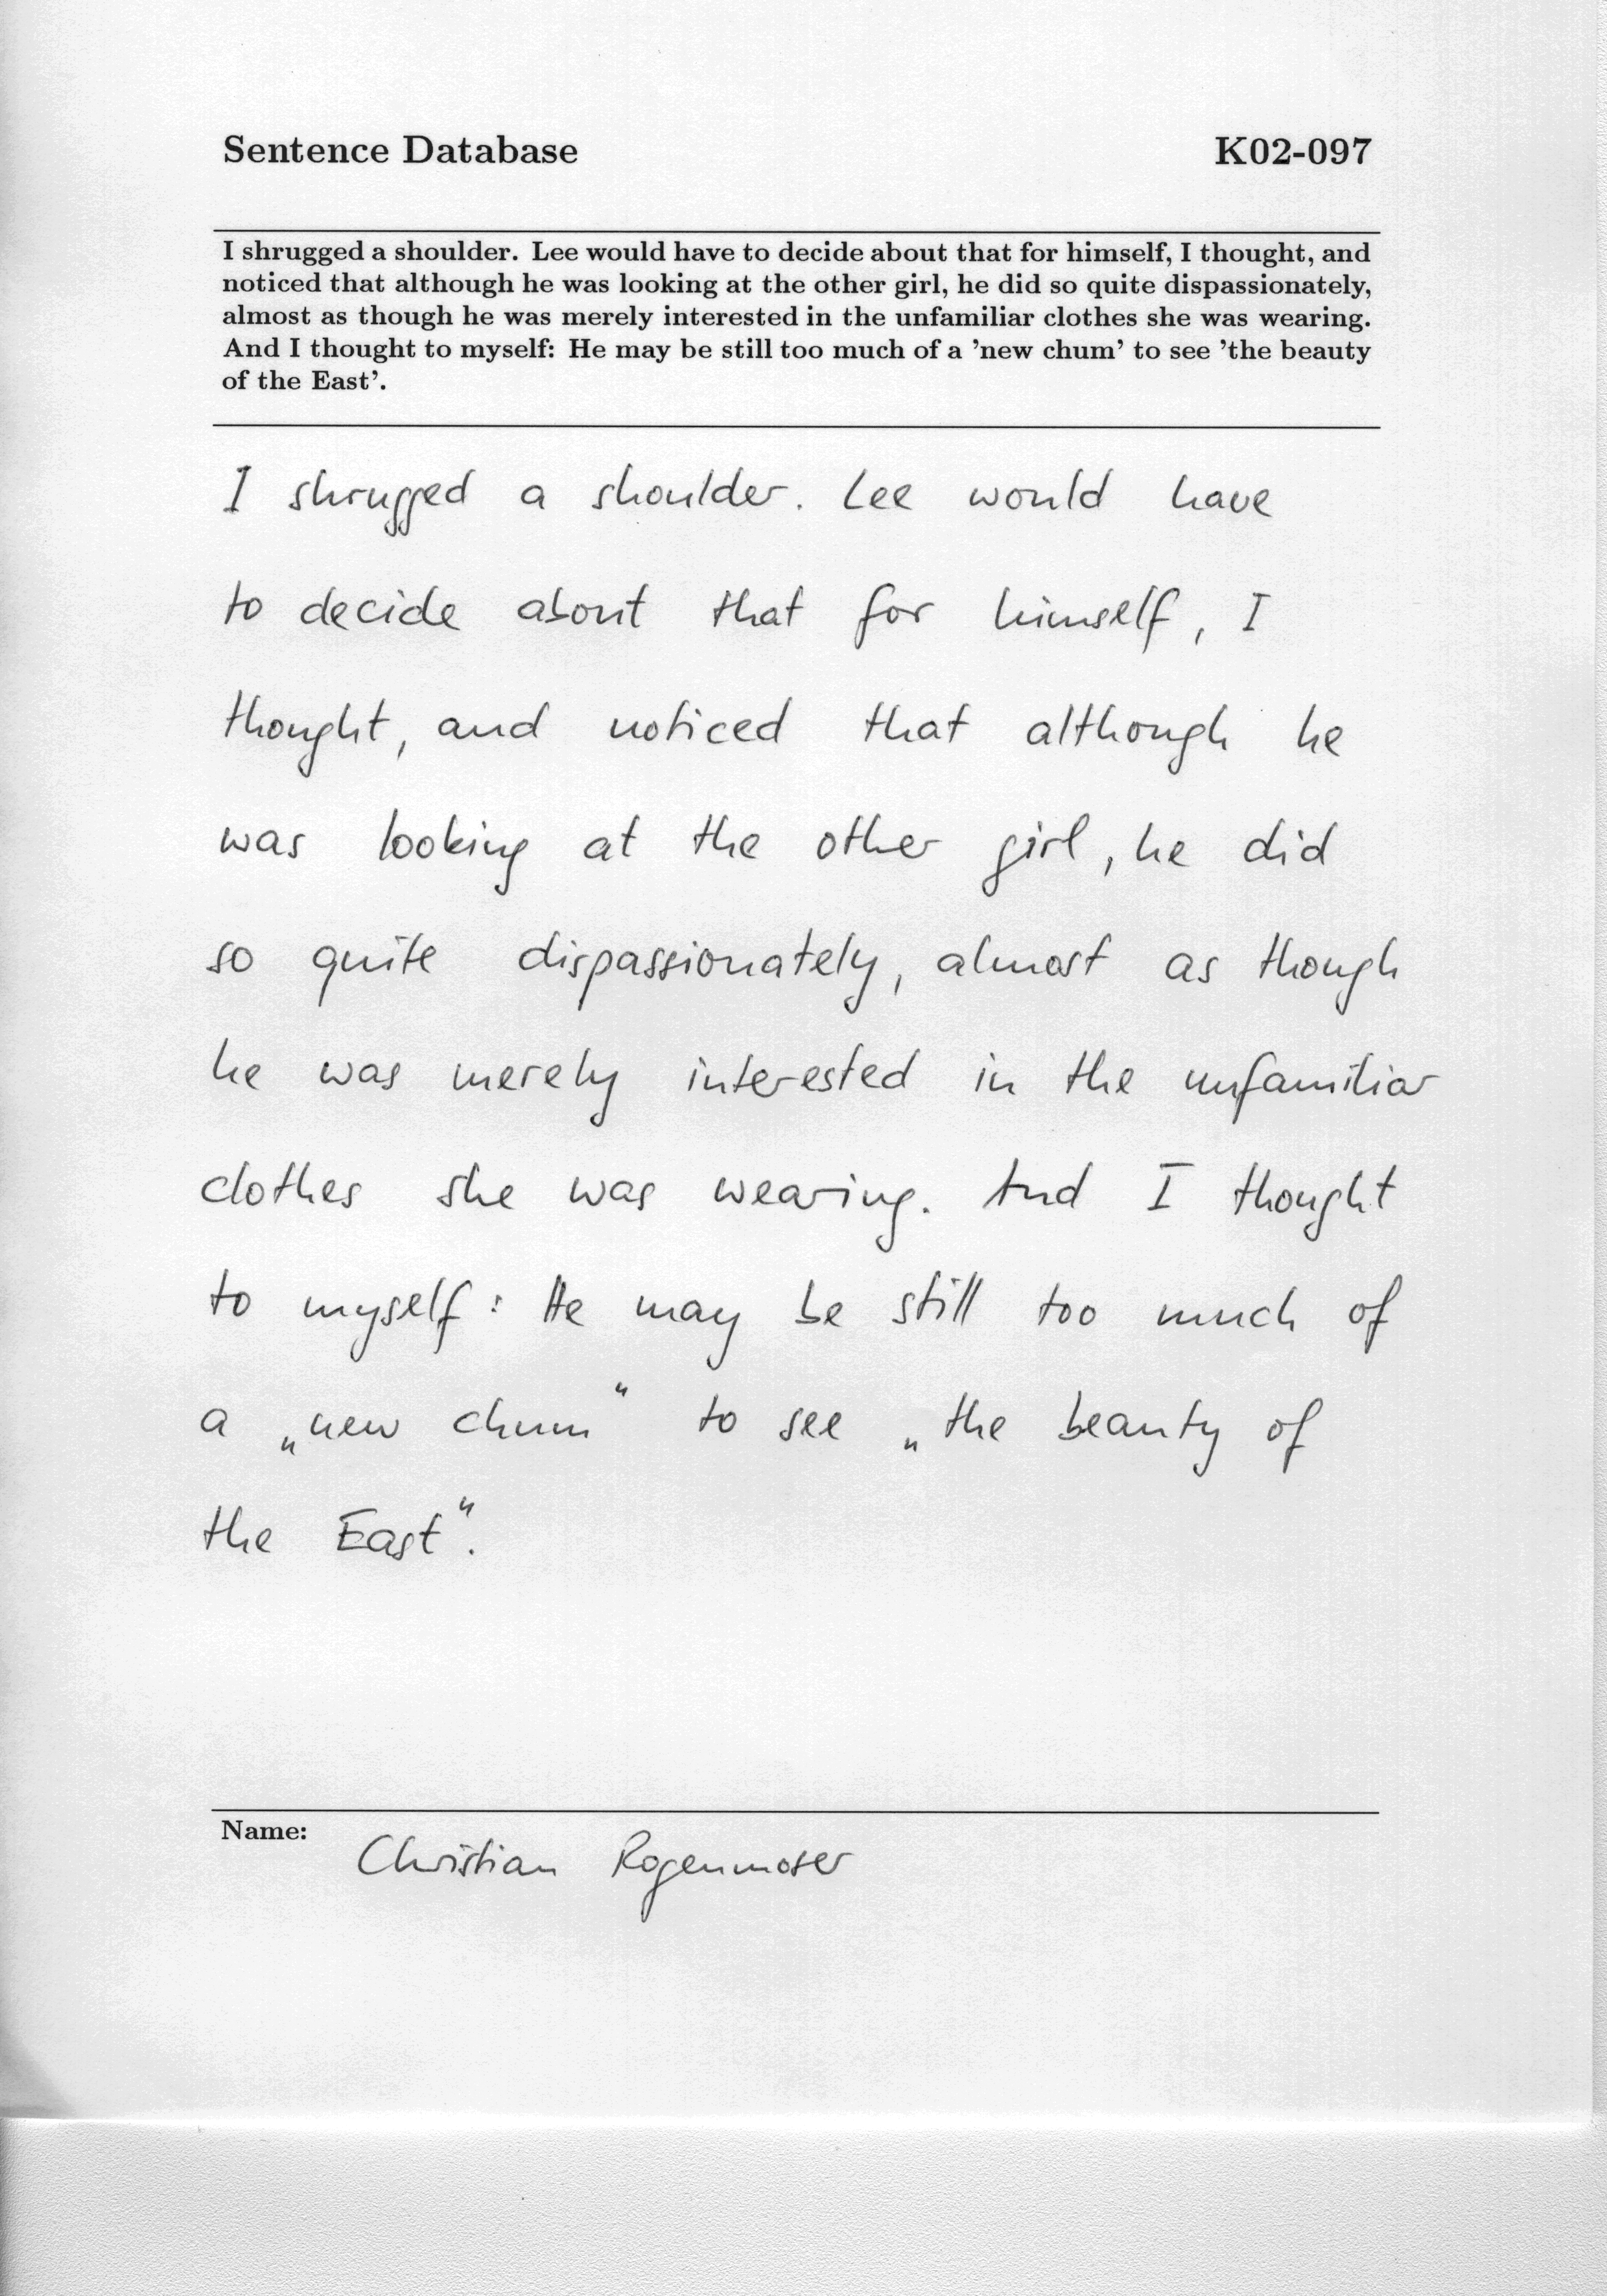 Sentence Database K02-097
I shrugged a shoulder. Lee would have to decide about that for himself, I thought, and
noticed that although he was looking at the other girl, he did so quite dispassionately,
almost as though he was merely interested in the unfamiliar clothes she was wearing.
And I thought to myself: He may be still too much of a 'new chum' to see 'the beauty
of the East'.
I shrugged a shoulder. Lee would have
to decide about that for himself, I
thought, and noticed that although he
was looking at the other girl, he did
so quite dispassionately, almost as though
he was merely interested in the unfamiliar
clothes she was wearing. And I thought
to myself: He may be still too much of
a „new chum“ to see „the beauty of
the East“.
Name: Christian Rogenmoser